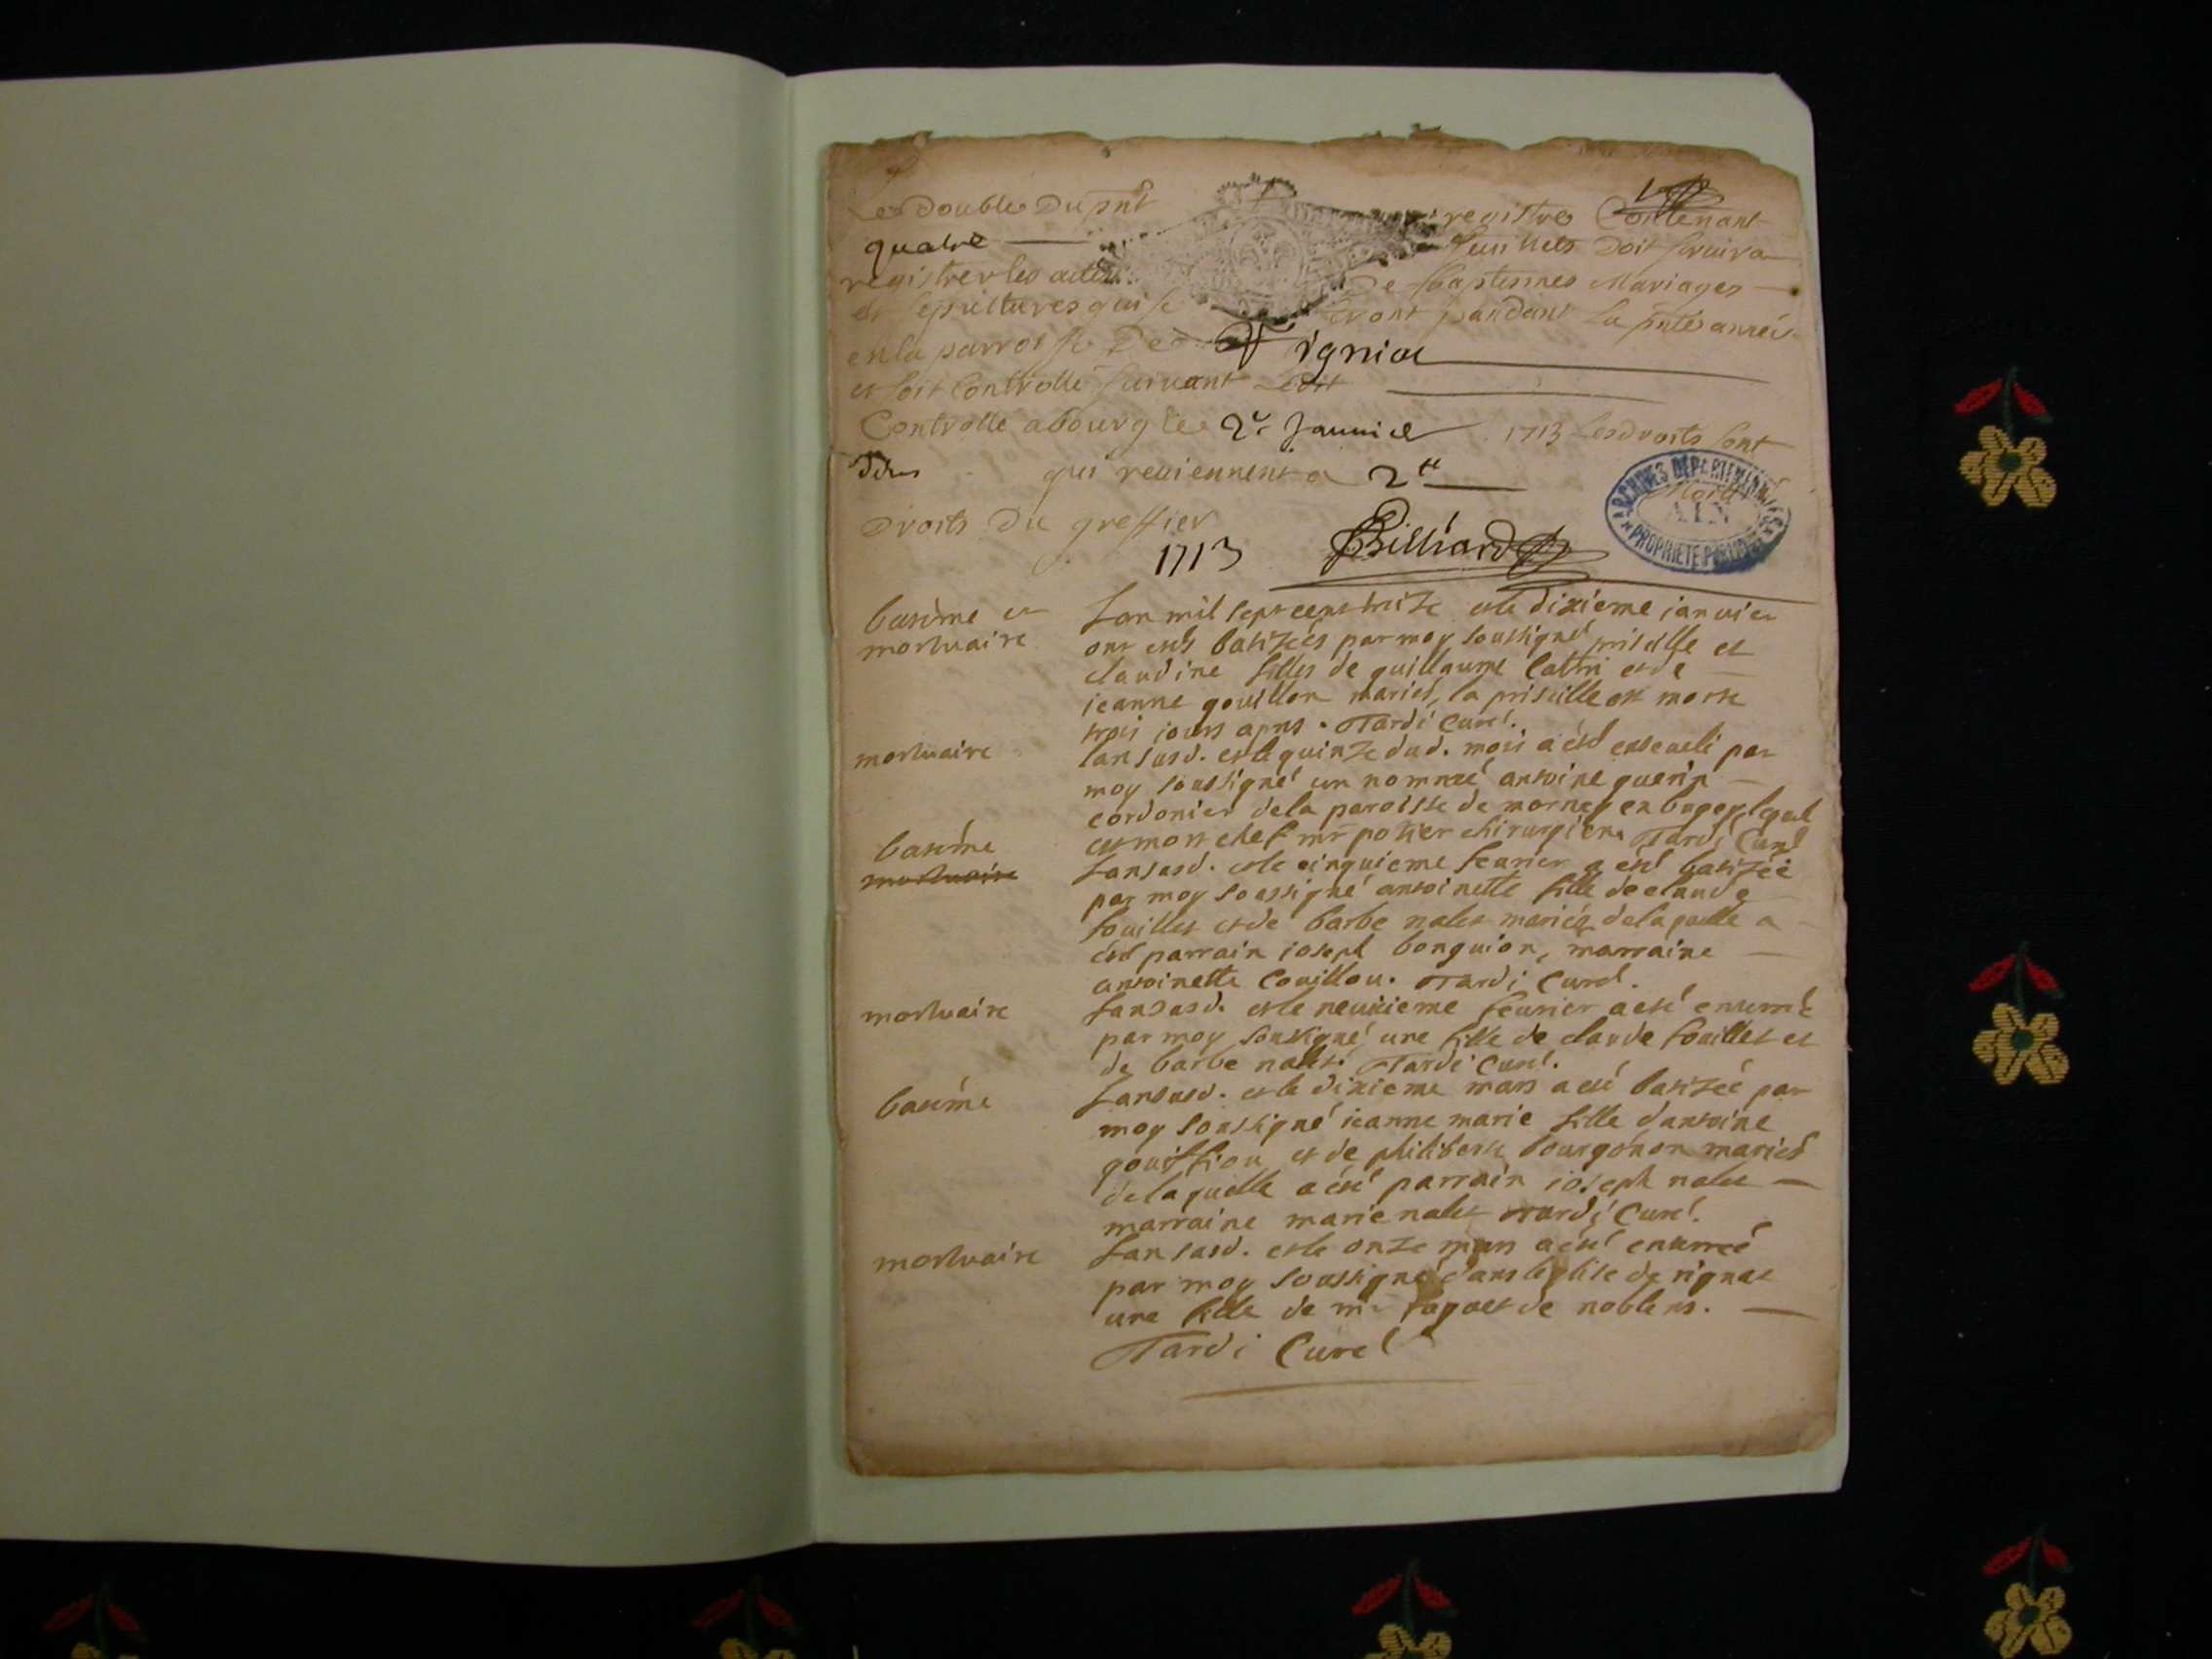 Le double du pnt registre Contenant
quatre feuillets doit servir a
registrer les actes de Baptesmes Mariages
et sepultures qui se feront pandant La pnte année
en la parroisse De Rignia
et soit Controllé suivant Ledit
Controllé a bourg le 2e Januier 1713 Les droits sont
dus qui reuiennent a 2tt
Droits Du greffier
1713 Billiard
ARCHIVES DEPARTEMENTALES
AIN
PROPRIETE PUBLIQUE
batême et mortuaire
Lan mil sept cent treize et le dixieme ianuier
ont estés batisées par moy soussigné priscille et
claudine filles de guillaume et de
ieanne gouillon mariés, la priscille est morte
trois iours apres. Tardi Curé.
mortuaire
lan susd. et le quinze dud. mois a été enseueli par
moy soussigné un nommé antoine guerin
cordonier de la paroisse de mornay en bugey lequel
est mort chef mr potier chirurgien. Tardi Curé
batême
mortuaire
Lan susd. et le cinquieme feurier a esté batisée
par moy soussigné antoinette fille de claude
fouillet et de barbe nalet mariés de laquelle a
été parrain ioseph bonguion, marraine
antoinette Couillou. Tardi Curé.
mortuaire
Lan susd. et le neuuieme feurier a esté enterré
par moy soussigné une fille de claude fouillet et
de barbe nalet. Tardi Curé.
batême
Lan susd. et le dixieme mars a esté batisée par
moy soussigné ieanne marie fille dantoine
gouiffiou et de philiberte bourgonon mariés
de laquelle a esté parrain ioseph nalet
marraine marie nalet Tardi Curé.
mortuaire
Lan susd. et le onze mars a esté enterreé
par moy soussigné dans leglise de rignat
une fille de mr de noblens.
Tardi Curé